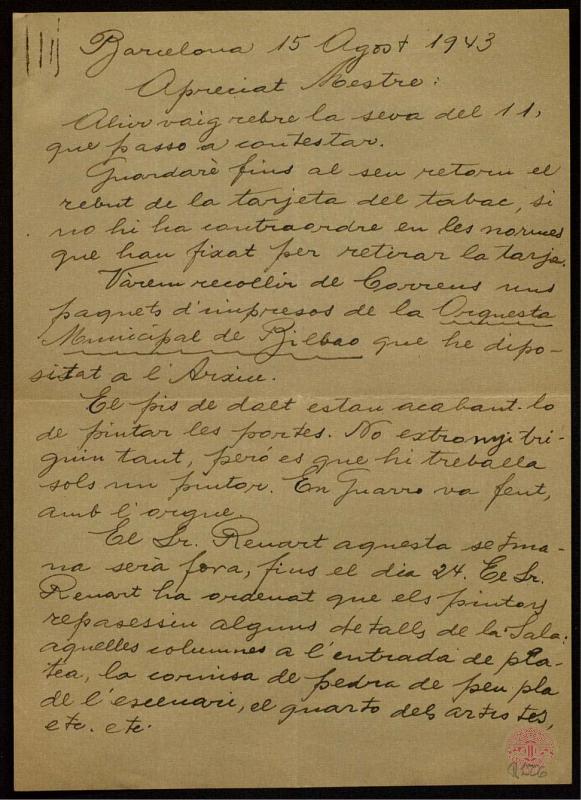 Barcelona 15 Agost 1943
Apreciat Mestre:
Ahir vaig rebre la seva del 11,
que passo a contestar.
Guardarè fins al seu retorn el
rebut de la tarjeta del tabac, si
no hi ha contraordre en les normes
que han fixat per retirar la tarja.
Vàrem recollir de Correus uns
paquets d'impresos de la Orquesta
Municipal de Bilbao que he dipo-
sitat a l'Arxiu.
El pis de dalt estan acabant-lo
de pintar les portes. No extronyi tri-
guin tant, però es que hi treballa
sols un pintor. En Guarro va fent,
amb l'orgue.
El Sr. Renart aquesta setma-
na serà fora, fins el dia 24. El Sr.
Renart ha ordenat que els pintors
repasessin alguns detalls de la Sala:
aquelles columnes a l'entrada de pla-
tea, la cornisa de pedra de peu pla
de l'escenari, el quarto dels artistes,
etc. etc.